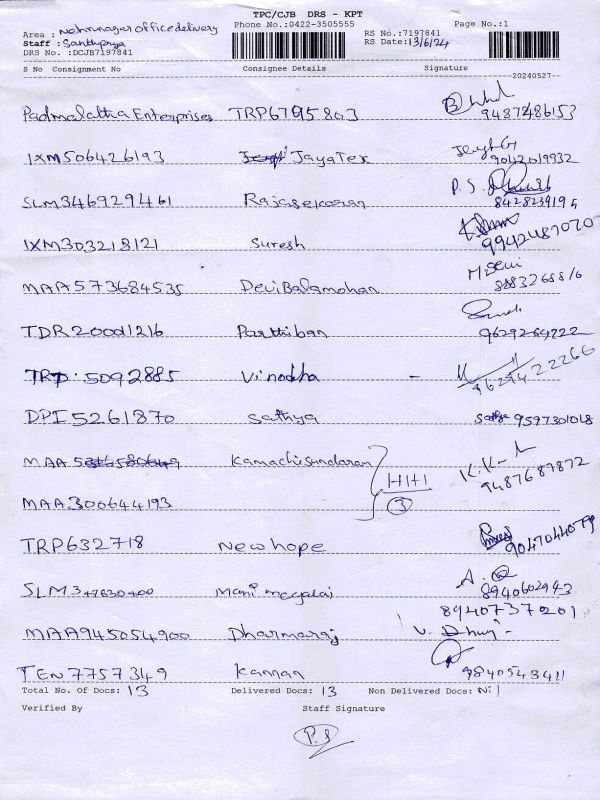 TPC/CJB DRS - KPT
Area : Nehrunagar office delivery Phone No.:0422-3505555 RS No.:7197841 Page No.:1
Staff : Santhiprya RS Date: 13/6/24
DRS No. :DCJB7197841
S No Consignment No Consignee Details Signature
20240527
Padmalatha Enterprises TRP6795803 9487486153
IXM506426193 JayaTex 9042019932
SLM3469294461 Rajasekaran P.S. 8428239195
IXM303218121 Suresh 9942487070
MAA573684535 DeviBalamohan M.Devi
TDR20001216 Parthiban 9629264222
TRP:5092885 Vinodha - 9629422266
DPI5261870 Sathya 9597301018
MAA Kamachisundaran K.K- 9487687872
MAA300644193 H1H1 3
TRP632718 Newhope 9047044079
SLM347630400 Mani megalai A. 8940602943
8940737201
MAA945054900 Dharmaraj V. Dhuj-
TEN7757349 Kannan 9840543411
Total No. Of Docs: 13 Delivered Docs: 13 Non Delivered Docs: Nil
Verified By Staff Signature
P.S